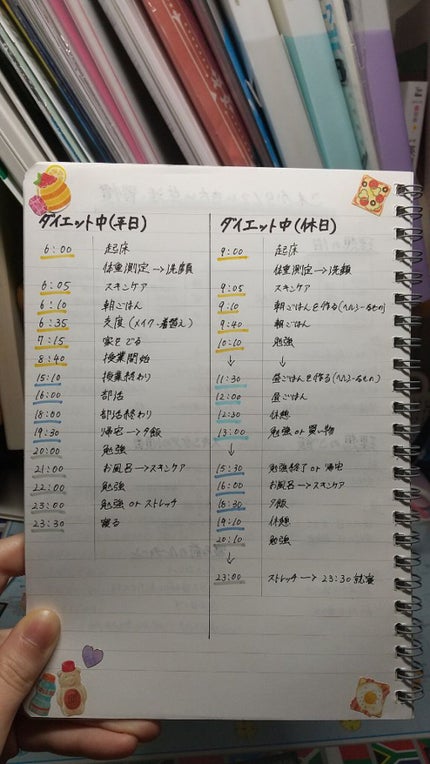 ダイエット中(平日)
6:00 起床
体重測定→洗顔
6:05 スキンケア
6:10 朝ごはん
6:35 支度(メイク・着替え)
7:15 家をでる
8:40 授業開始
15:10 授業終わり
16:00 部活
18:00 部活終わり
19:30 帰宅→夕飯
20:00 勉強
21:00 お風呂→スキンケア
22:00 勉強
23:00 勉強orストレッチ
23:30 寝る
ダイエット中(休日)
9:00 起床
体重測定→洗顔
9:05 スキンケア
9:10 朝ごはんを作る(ヘルシーなもの)
9:40 朝ごはん
10:10 勉強
↓ ↓
11:30 昼ごはんを作る(ヘルシーなもの)
12:00 昼ごはん
12:30 休憩
13:00 勉強or買い物
↓ ↓
15:30 勉強終了or帰宅
16:00 お風呂→スキンケア
18:30 夕飯
19:10 休憩
20:10 勉強
↓
23:00 ストレッチ→23:30就寝